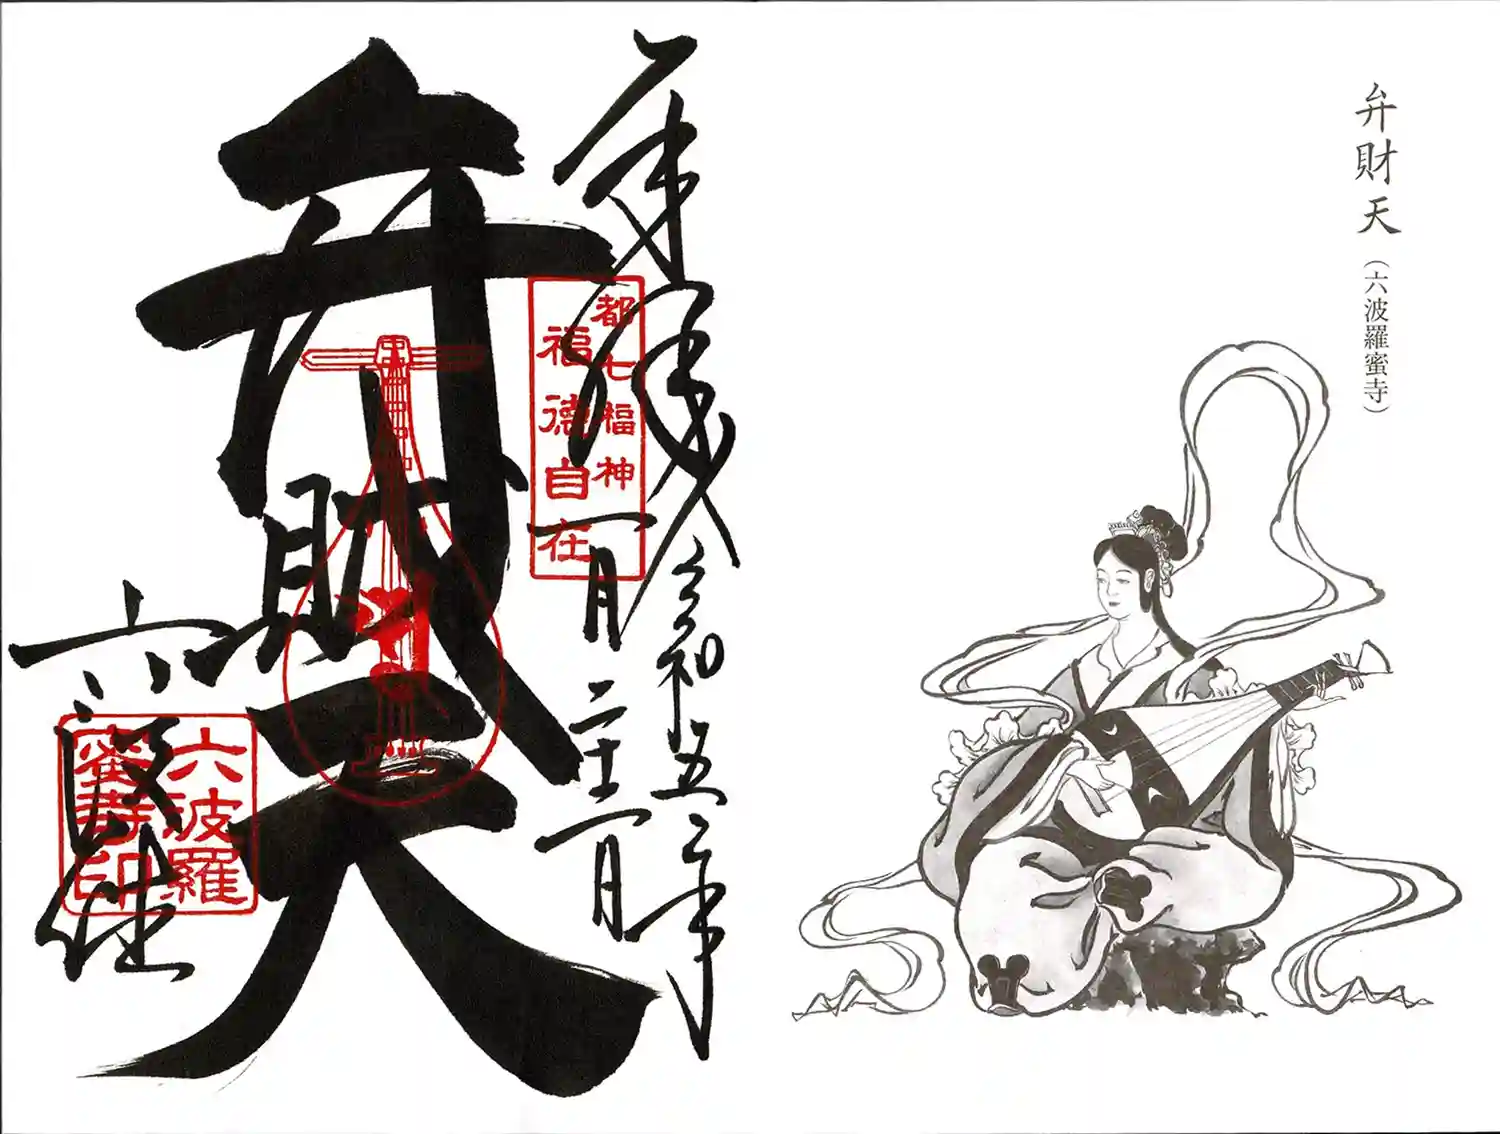 弁財天
(六波羅蜜寺)
奉拝
令和五年
一月二十一日
都七福神
福徳自在
弁財天
六波羅
蜜寺印